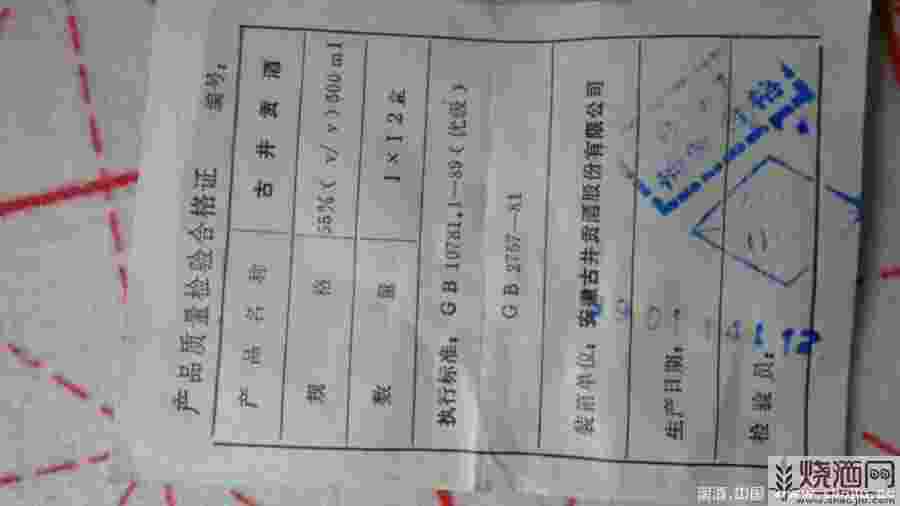 产品质量检验合格证
编号：
产品名称 古井贡酒
规格 55%(v/v)500ml
数量 1×12盒
执行标准：GB10781.1—89(优级)
GB2757—81
装箱单位：安徽古井贡酒股份有限公司
生产日期：
检验员：
12
烧酒网
www.shaojiu.com